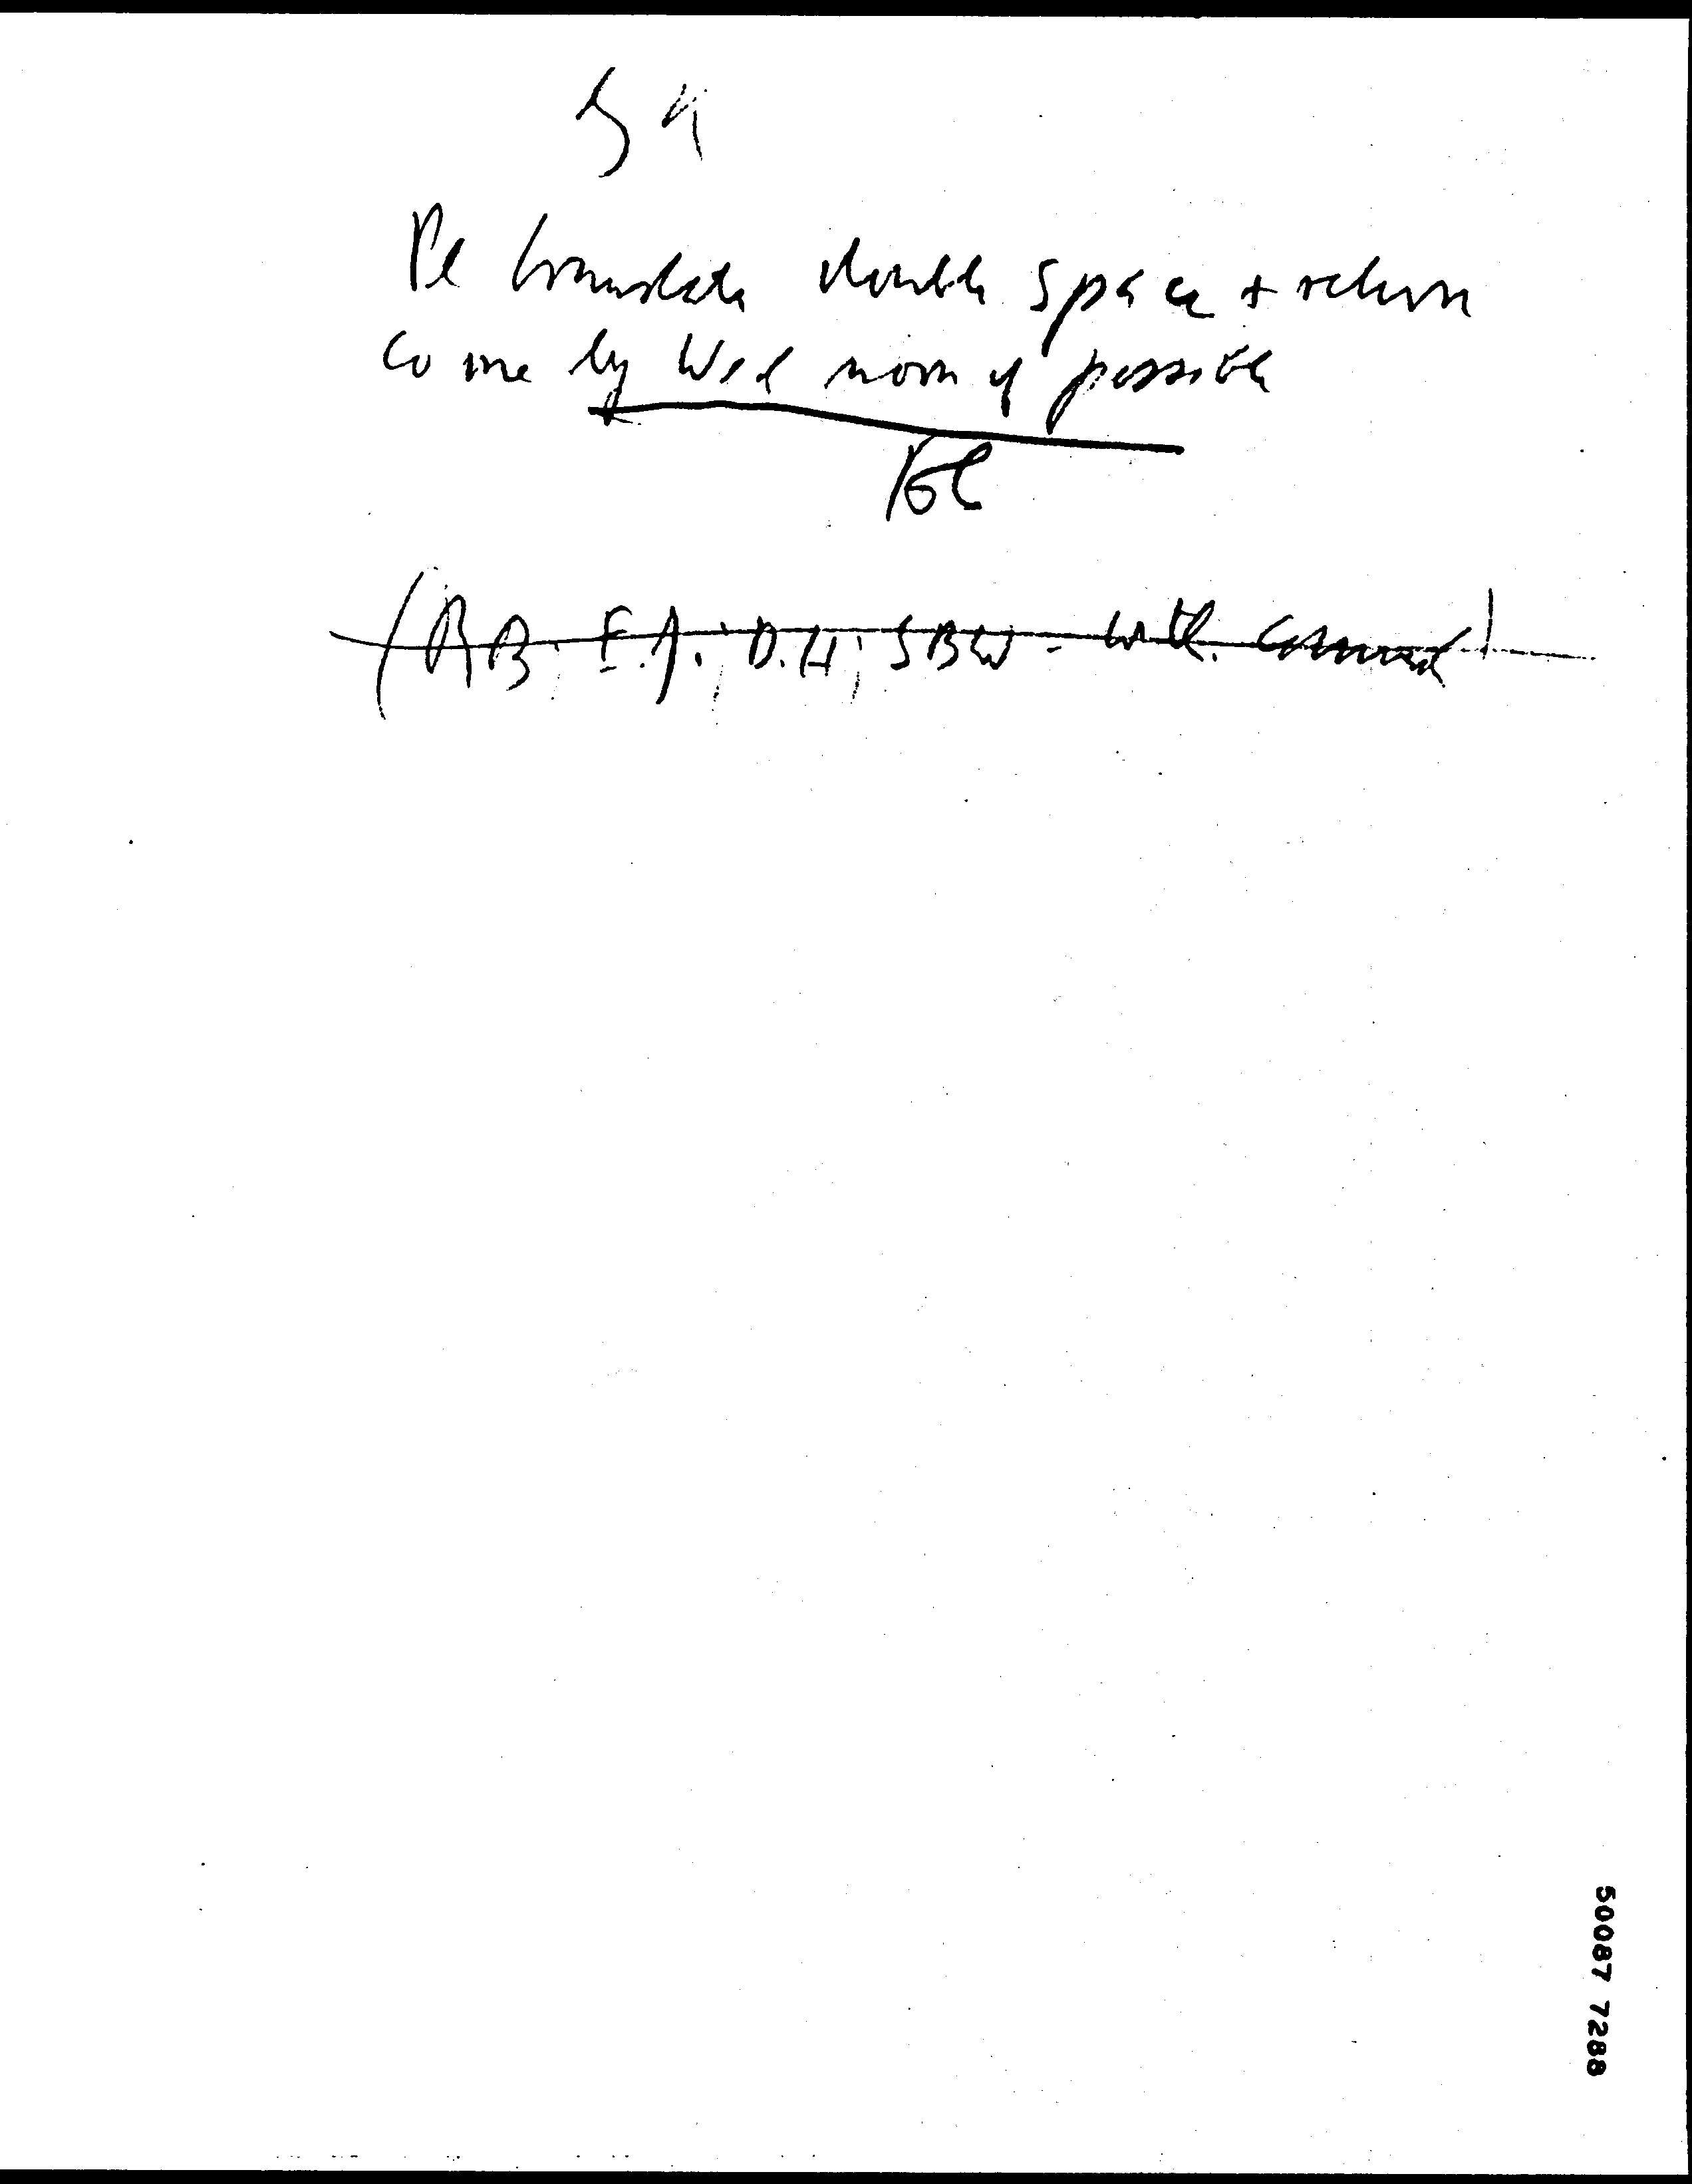 Pl translate double space + return
to me by Wed noon if possible
(RB, F.A., D.H, SBW - with comment)
50087 7288